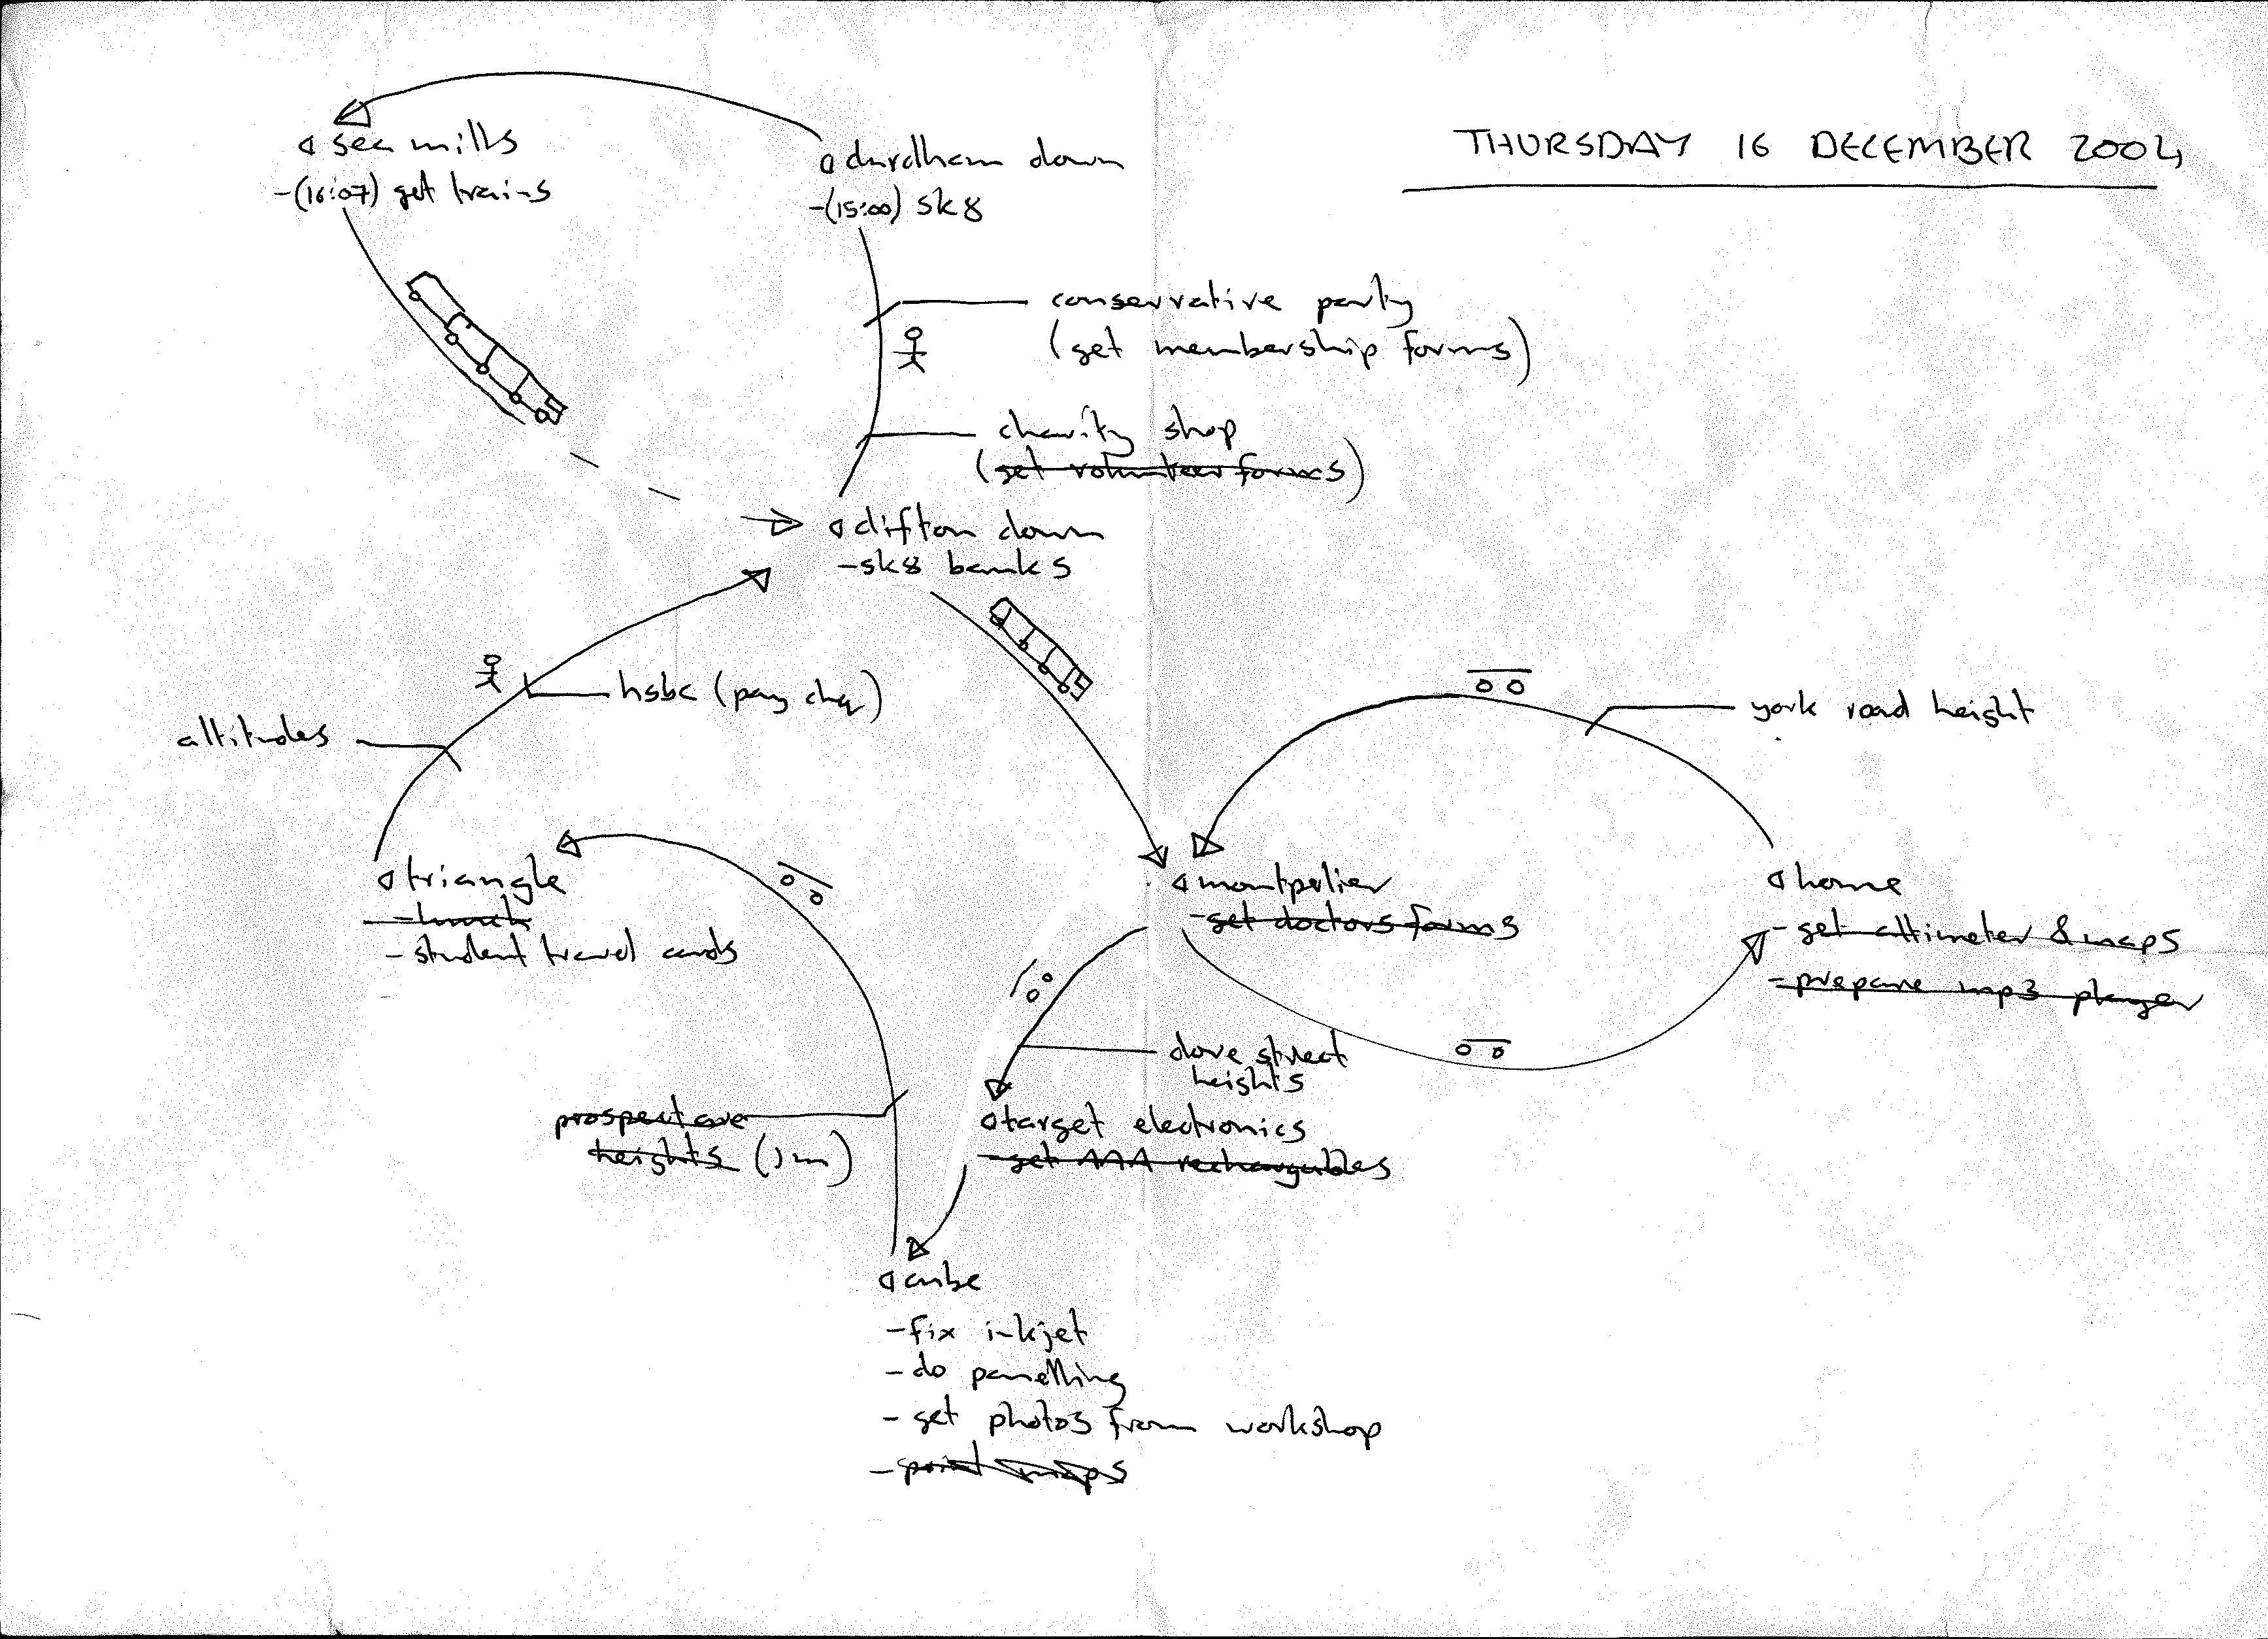 THURSDAY 16 DECEMBER 2004
sea mills
-(16:07) get trains
durdham down
-(15:00) sk8
conservative party
(get membership forms)
charity shop
(get volunteer forms)
clifton down
-sk8 banks
hsbc (pay chq)
altitudes
york road height
triangle
-lunch
- student travel cards
montpelier
-get doctors forms
home
- get altimeter & maps
- prepare mp3 player
dove street
heights
prospect ave
heights
target electronics
-get AAA rechargables
cube
-fix inkjet
- do panelling
- get photos from workshop
- print maps